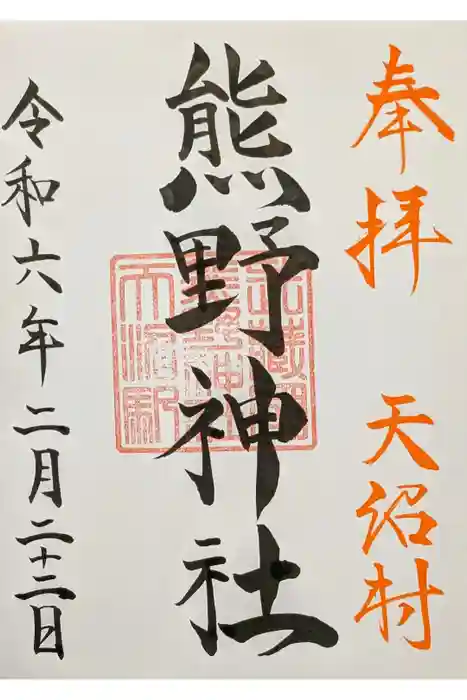 奉拝 天沼村
熊野神社
令和六年二月二十二日